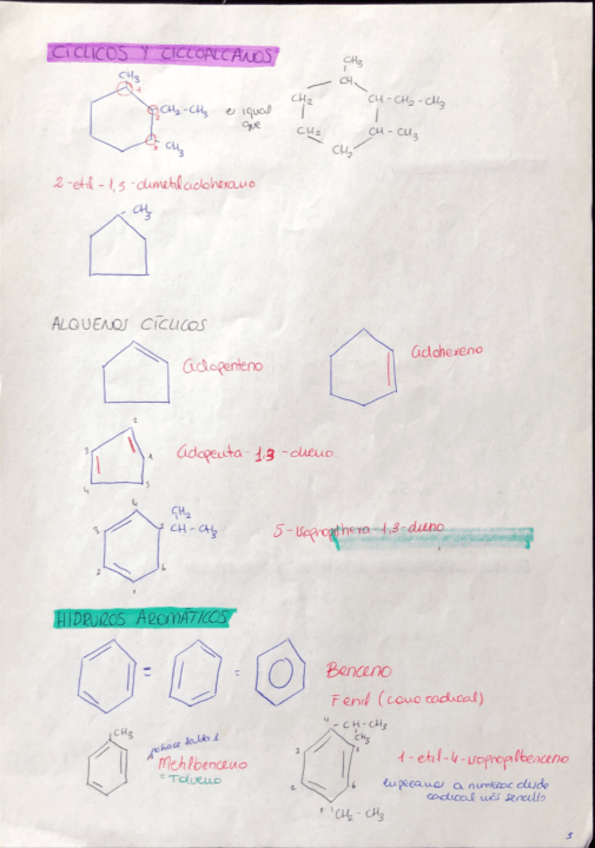 CÍCLICOS Y CICLOALCANOS
CH3
1
2
3
CH2-CH3
CH3
es igual
que
CH3
CH
CH2
CH-CH2-CH3
CH2
CH-CH3
CH2
2-etil-1,3-dimetilciclohexano
CH3
ALQUENOS CÍCLICOS
Ciclopenteno
Ciclohexeno
2
3
1
4
5
Ciclopenta-1,3-dieno
4
3
5
2
6
1
CH-CH3
HIDRUROS AROMÁTICOS
= =
Benceno
Fenil (como radical)
CH3
Metilbenceno
= Tolueno
4
CH-CH3
CH3
3
5
2
6
1
CH2-CH3
1-etil-4-isopropilbenceno
empezamos a numerar desde
radical más sencillo